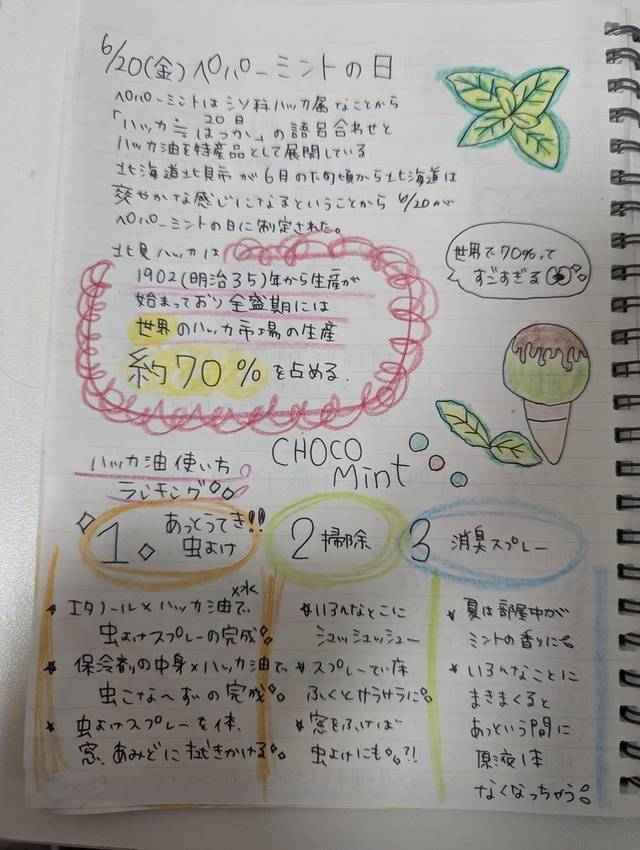 6/20(金) ペパーミントの日
ペパーミントはシソ科ハッカ属なことから
20日
「ハッカ≒はっか」の語呂合わせと
ハッカ油を特産品として展開している
北海道北見市が6月の下旬頃から北海道は
爽やかな感じになるということから 6/20が
ペパーミントの日に制定された。
北見ハッカは
1902(明治35)年から生産が
始まっており全盛期には
世界のハッカ市場の生産
約70%を占める.
世界で70%って
すごすぎる
CHOCO
Mint
ハッカ油使い方
ランキング
1. あっとうてき!!
虫よけ
×水
★ エタノール×ハッカ油で、
虫よけスプレーの完成
★ 保冷剤の中身×ハッカ油で、
虫こな〜ずの完成
★ 虫よけスプレーを体、
窓、あみどに拭きかける
2 掃除
★ いろんなとこに
シュッシュッシュー
★ スプレーでい床
ふくとサラサラに。
★ 窓をふけば
虫よけにも?!
3 消臭スプレー
★ 夏は部屋中が
ミントの香りに。
★ いろんなことに
まきまくると
あっという間に
原液1本
なくなっちゃう。